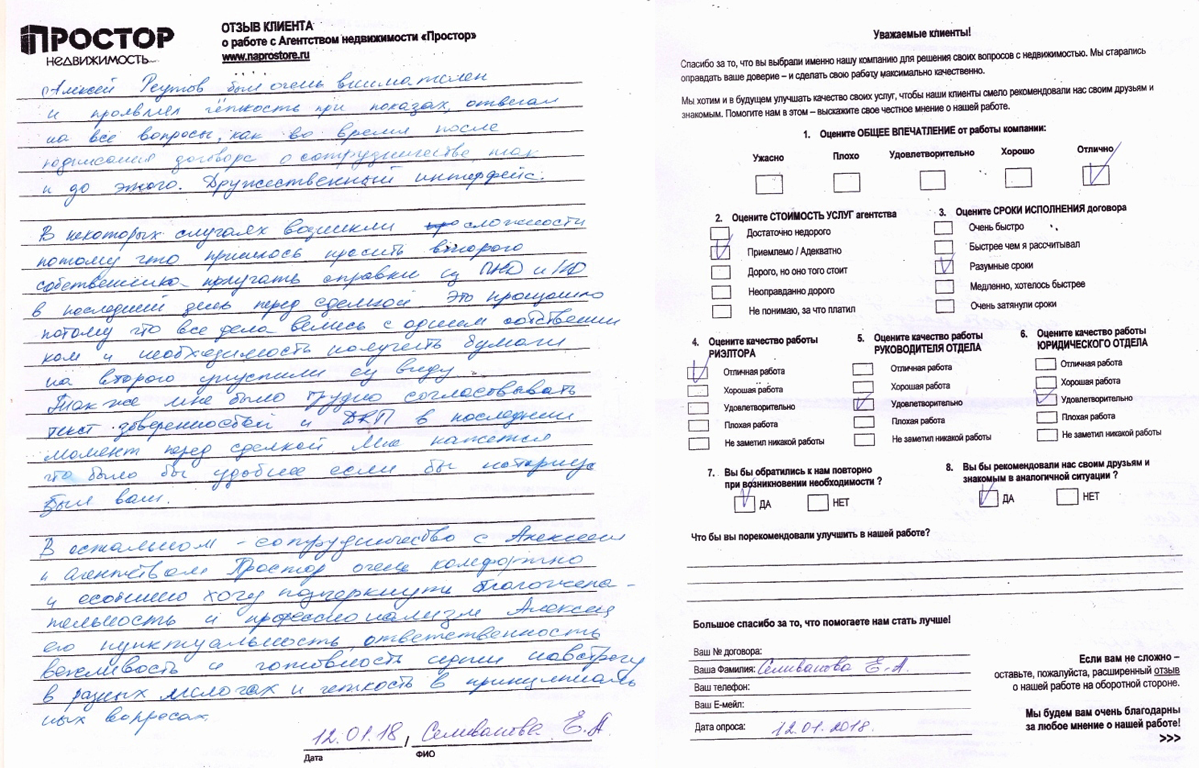 ПРОСТОР
НЕДВИЖИМОСТЬ
ОТЗЫВ КЛИЕНТА
о работе с Агентством недвижимости «Простор»
www.naprostore.ru
Алексей Реутов был очень внимателен
и проявлял гибкость при показах, отвечал
на все вопросы, как во время после
подписания договора о сотрудничестве так
и до этого. Дружественный интерфейс.
В некоторых случаях возникли сложности
потому что пришлось просить второго
собственника получать справки из ПНД и НД
в последний день перед сделкой. Это произошло
потому что все дела велись с одним собственни
ком и необходимость получить бумаги
на второго упустили из виду.
Также мне было трудно согласовывать
текст доверенностей и ДКП в последний
момент перед сделкой. Мне кажется
что было бы удобнее если бы нотариус
был ваш.
В остальном - сотрудничество с Алексеем
и агентством Простор очень комфортно
и особенно хочу подчеркнуть благожела-
тельность и профессионализм Алексея
его пунктуальность, ответственность
вежливость и готовность идти навстречу
в разных мелочах и четкость в принципиаль
ных вопросах.
12.01.18 / Селиванова Е.А.
Дата ФИО
Уважаемые клиенты!
Спасибо за то, что вы выбрали именно нашу компанию для решения своих вопросов с недвижимостью. Мы старались
оправдать ваше доверие – и сделать свою работу максимально качественно.
Мы хотим и в будущем улучшать качество своих услуг, чтобы наши клиенты смело рекомендовали нас своим друзьям и
знакомым. Помогите нам в этом – выскажите свое честное мнение о нашей работе.
1. Оцените ОБЩЕЕ ВПЕЧАТЛЕНИЕ от работы компании:
Ужасно Плохо Удовлетворительно Хорошо Отлично
2. Оцените СТОИМОСТЬ УСЛУГ агентства
Достаточно недорого
Приемлемо / Адекватно
Дорого, но оно того стоит
Неоправданно дорого
Не понимаю, за что платил
3. Оцените СРОКИ ИСПОЛНЕНИЯ договора
Очень быстро
Быстрее чем я рассчитывал
Разумные сроки
Медленно, хотелось быстрее
Очень затянули сроки
4. Оцените качество работы
РИЭЛТОРА
Отличная работа
Хорошая работа
Удовлетворительно
Плохая работа
Не заметил никакой работы
5. Оцените качество работы
РУКОВОДИТЕЛЯ ОТДЕЛА
Отличная работа
Хорошая работа
Удовлетворительно
Плохая работа
Не заметил никакой работы
6. Оцените качество работы
ЮРИДИЧЕСКОГО ОТДЕЛА
Отличная работа
Хорошая работа
Удовлетворительно
Плохая работа
Не заметил никакой работы
7. Вы бы обратились к нам повторно
при возникновении необходимости ?
ДА НЕТ
8. Вы бы рекомендовали нас своим друзьям и
знакомым в аналогичной ситуации ?
ДА НЕТ
Что бы вы порекомендовали улучшить в нашей работе?
Большое спасибо за то, что помогаете нам стать лучше!
Ваш № договора:
Ваша Фамилия: Селиванова Е.А.
Ваш телефон:
Ваш Е-мейл:
Дата опроса: 12.01.2018.
Если вам не сложно –
оставьте, пожалуйста, расширенный отзыв
о нашей работе на оборотной стороне.
Мы будем вам очень благодарны
за любое мнение о нашей работе!
>>>